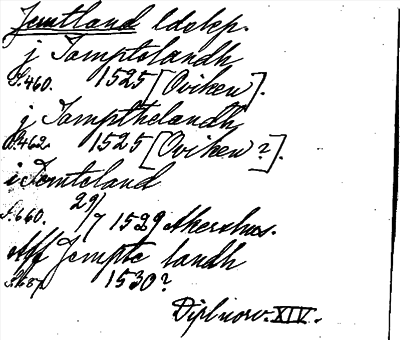 Jemtland ldskp.
j Jamptolandh
S.460. 1525 [Oviken].
j Jampthelandh
S.462. 1525 [Oviken?].
i Jemteland
S.660. 29/7 1529 Akershus.
Aff Jempte landh
S.687. 1530?
Dipl. norv. XIV.